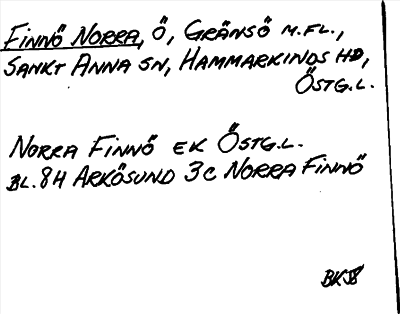 FINNÖ NORRA, Ö, GRÄNSÖ M.FL.,
SANKT ANNA SN, HAMMARKINDS HD,
ÖSTG.L.
NORRA FINNÖ EK ÖSTG.L.
BL. 8H ARKÖSUND 3C NORRA FINNÖ